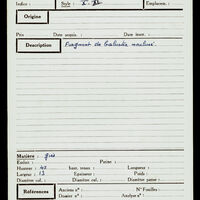 Indice : Style : X - XI Emplacem. :
Origine
Prix : Date acquis. : Date insert. :
Description Fragment de balustre mouluré.
Matière : grès
Endui : Patine :
Hauteur : 42 haut. tenon : Longueur :
Largeur : 13 Epaisseur : Poids :
Diamètre col. : Diamètre col. : Diamètre panse :
Références Anciens n° : N° Fouilles :
Dossier n° : Analyse n° :